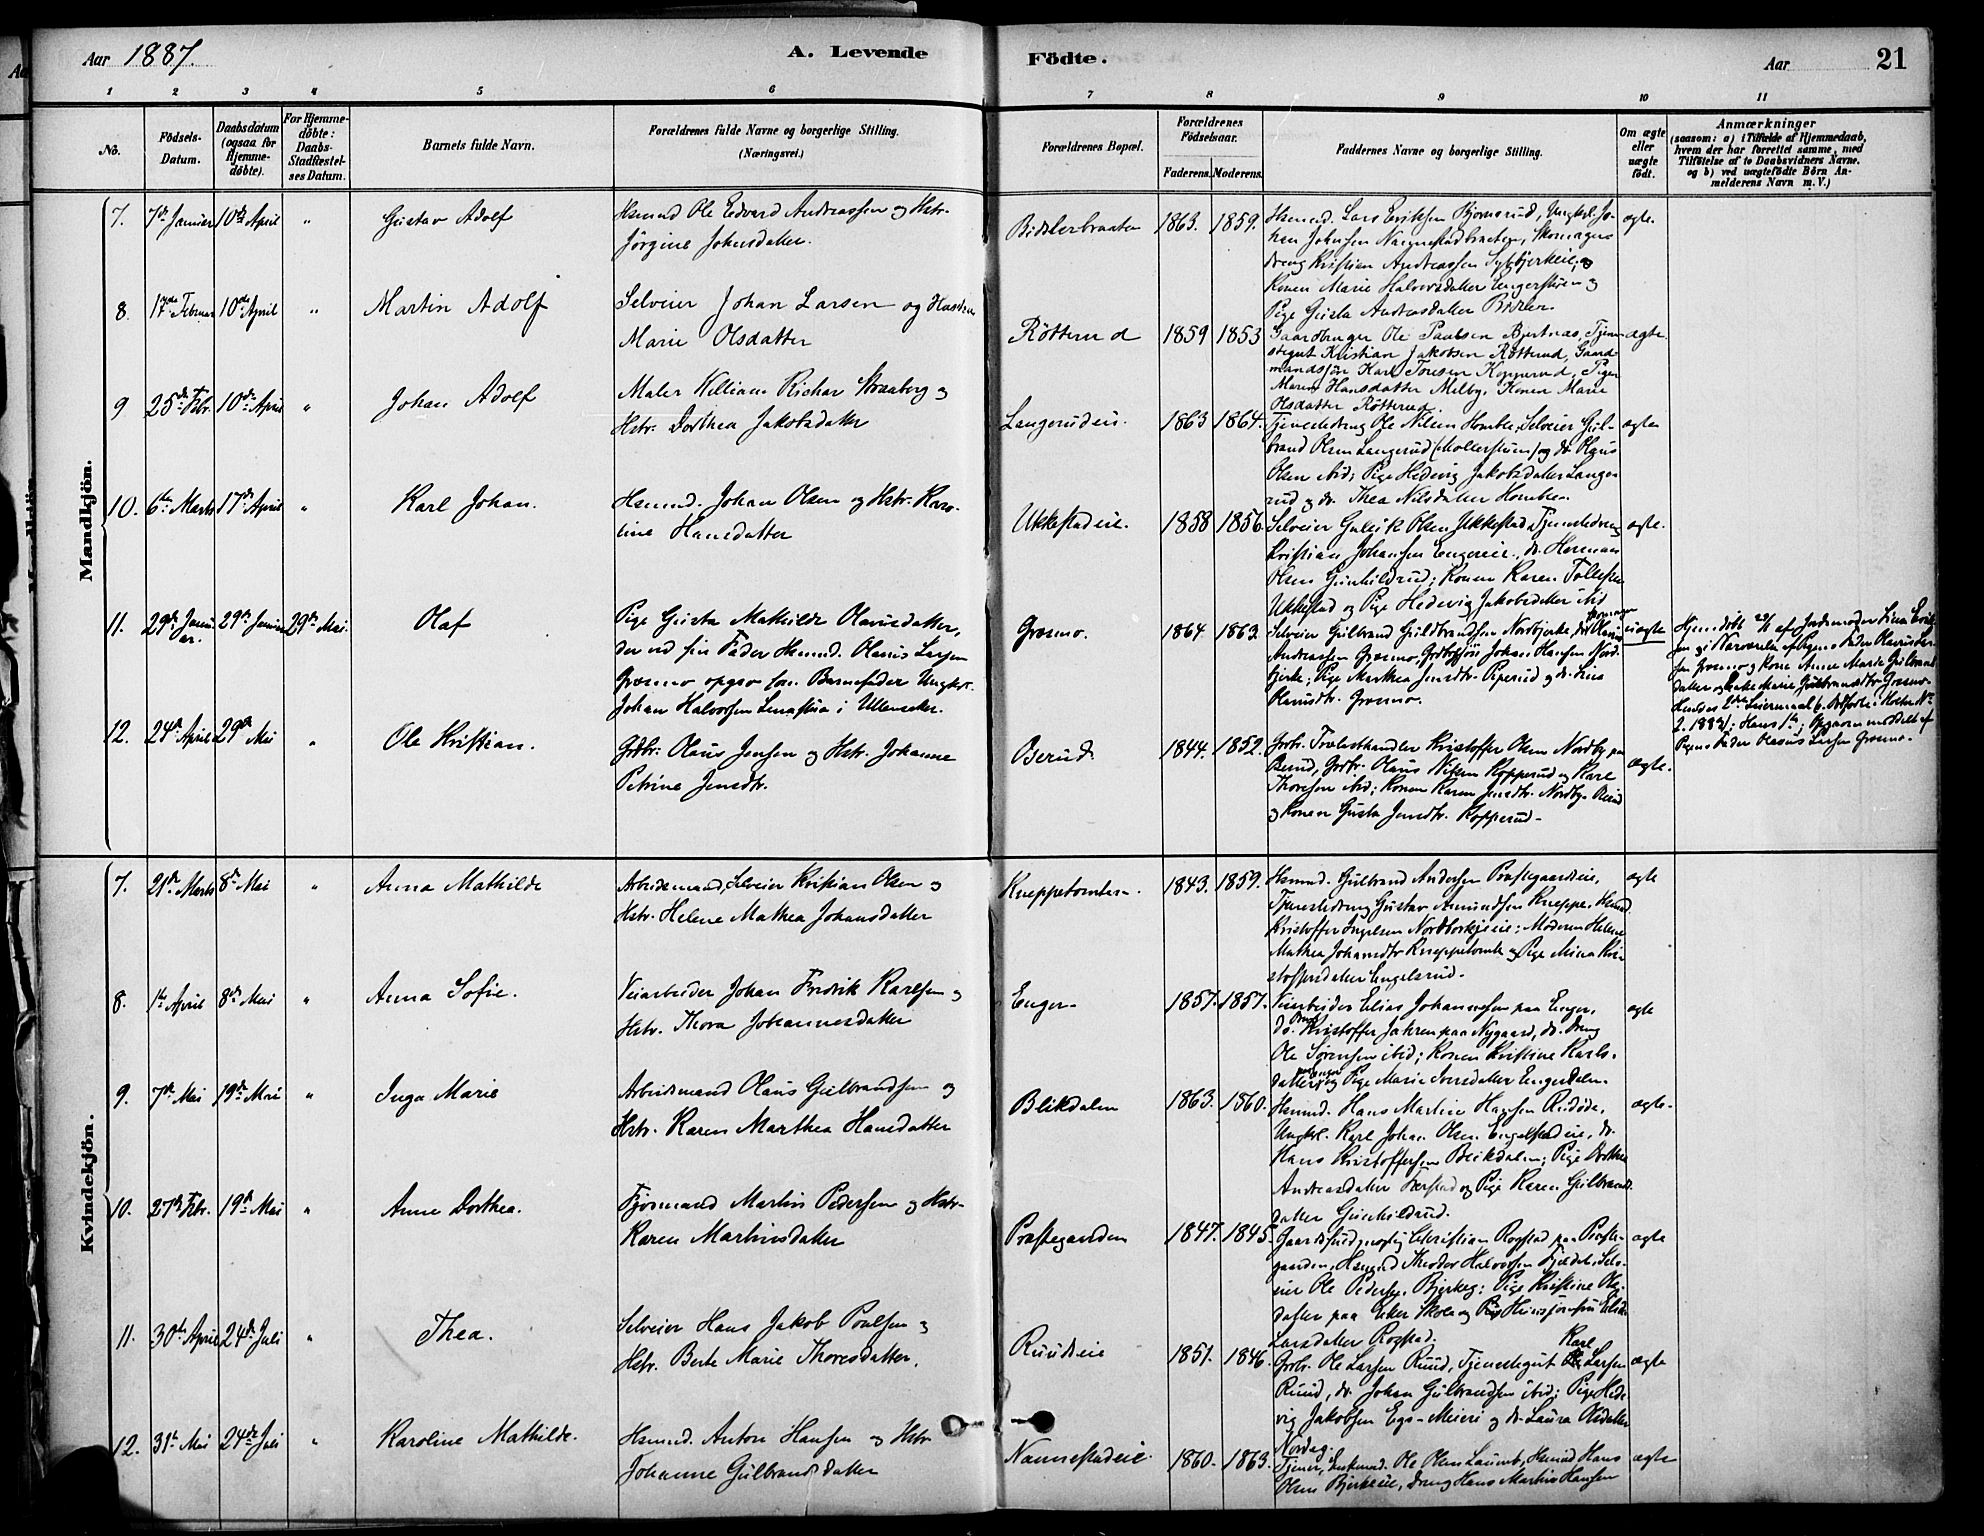 Aar 1887.
A. Levende
Födte.
Aar
21
1
2
3
4
5
6
7
8
9
10
11
No.
Födsels-
Datum.
Daabsdatum
(ogsaa for
Hjemme-
döbte).
For Hjemme-
döbte:
Daabs-
Stadfæstel-
ses Datum.
Barnets fulde Navn.
Forældrenes fulde Navne og borgerlige Stilling.
(Næringsvei.)
Forældrenes Bopæl.
Forældrenes
Födselsaar.
Faderens.
Moderens.
Faddernes Navne og borgerlige Stilling.
Om ægte
eller
uægte
født.
Anmærkninger
(saasom: a) i Tilfælde af Hjemmedaab,
hvem der har forrettet samme, med
Tilföielse af to Daabsvidners Navne.
og b) ved uægtefödte Börn An-
melderens Navn m. V.)
Mandkjön.
7. 7de Januar 10de April " Gustav Adolf
Hsmnd Ole Edvard Andreassen og Hstr.
Jörgine Johnsdatter.
1863. 1859.
Hsmnd. Lars Eriksen Bjørnsrud, Ungkl. Jo-
han Johnsen Nannestadbraaten, Skomager
dreng Kristian Andreassen
Konen Marie Halvorsdatter Engerstuen og
Pige Gusta Andreasdatter
ægte.
8. 17de Februar 10de April " Martin Adolf
Selveier Johan Larsen og Hustru
Marie Olsdatter
Rötterud 1859 1853
Gaardbruger Ole Paulsen Bjertnæs, Tjene-
stegut Kristian Jakobsen Rötterud, Gaard-
mandssön Karl Toresen Kopperud, Pigen
Maren Hansdatter Melby, Konen Marie
Olsdatter Rötterud.
ægte.
9 25de Febr. 10de April " Johan Adolf
Maler William Richar Straaberg og
Hstr. Dorthea Jakobsdatter
Langerudeie. 1863 1864.
Tjenestedreng Ole Nilsen Homble, Selveier Gul-
brand Olsen Langerud (Mollerstuen) og do Olaus
Olsen ibid; Pige Hedevig Jakobsdatter Lange-
rud og do. Thea Nilsdatter Homble.
ægte
10. 6te Marts 17de April " Karl Johan.
Hsmnd. Johan Olsen og Hstr. Karo-
line Hansdatter
Ukkestadeie. 1858 1856.
Selveier Gulerik Olsen Ukkestad, Tjenestedreng
Kristian Johansen Engereie, do. Herman
Olsen Gunhildrud; Konen Karen Tollefsen
Ukkestad og Pige Hedevig Jakobsdatter ibid
ægte.
11. 29de Janu-
ar. 29de Januar 29de Mai. Olaf
Pige Gusta Mathilde Olausdatter,
der ved sin Fader Hsmnd. Olaus Larsen
Græsmo opgav som Barnefader Ungkrl.
Johan Halvorsen Lunastua i Ullensaker.
Græsmo. 1864. 1863.
Selveier Gulbrand Guldbrandsen Nordbjerke,
Andreassen Græsmo, Johan Hansen Nord-
bjerke; Pige Marthea Jensdtr. Piperud og do. Lina
Olausdtr. Græsmo.
uægte
Hjemmedöbt 29/1 af Jordemoder Lina Erik-
sen i Nærværelse af Pigens Fader Olaus Lar-
sen Græsmo og Kone Anne Marte Gulbrands-
datter og Enke Marie Gulbrandsdtr. Græsmo.
Hendes 2det Leiermaal
2. 1883); Hans 1ste; Opgaven meddelt af
Pigens Fader Olaus Larsen Græsmo.
12. 24de April 29de Mai " Ole Kristian.
Grdbr. Olaus Jensen og Hstr. Johanne
Petrine Jensdtr.
Berud 1844. 1852.
Grdbr. Trælasthandler Kristoffer Olsen Nordby paa
Berud, Grdbr. Olaus Nilsen Kopperud og Karl
Thoresen ibid; Konen Karen Jensdtr. Nordby Berud
og Konen Gusta Jensdtr. Kopperud-
ægte.
Kvindekjön.
7. 21de Marts 8de Mai " Anna Mathilde
Arbeidsmand, Selveier Kristian Olsen og
Hstr. Helene Mathea Johansdatter
Kneppetomten. 1843. 1859.
Hsmnd. Gulbrand Andersen Præstegaardseie,
Tjenestedreng Gustav Amundsen Kneppe, Hsmd
Kristoffer Ingelsen Moderen Helene
Mathea Johansdtr Kneppetomten og Pige Mina Kri-
stoffersdatter Engelsrud.
ægte
8. 1ste April 8de Mai " Anna Sofie.
Veiarbeider Johan Fredrik Karlsen og
Hstr. Thora Johannesdatter
Enger- 1857. 1857.
Veiarbeider Elias Johannessen paa Enger,
do. Kristoffer Jahren paa Nygaard, do. dreng
Ole Sørensen ibid; Konen Kristine Karls-
datter paa Enger og Pige Marie Iversdatter Engerdalen.
ægte
9. 7de Mai 19de Mai " Inga Marie
Arbeidsmand Olaus Gulbrandsen og
Hstr. Karen Marthea Hansdatter
Blikdalen 1863. 1860.
Hsmnd. Hans Martin Hansen
Ungkl. Karl Johan Olsen Engelstadeie, do.
Hans Kristoffersen Blikdalen; Pige Dorthea
Andreasdatter og Pige Karen Gulbrands-
datter Gunhildrud.
ægte-
10. 27de Febr. 19de Mai " Anne Dorthea.
Fjösmand Martin Pedersen og Hstr.
Karen Martinsdatter
Præstegaarden 1847. 1845.
Christian Rogstad paa Præste-
gaarden, Hsmnd Theodor Halvorsen Fjeldet, Selv-
eier Ole Pedersen Bjerkeg; Pige Kristine Ole-
datter paa Eker Skole og
Larsdatter Rogstad.
ægte
11. 30te April 24de Juli " Thea.
Selveier Hans Jakob Poulsen og
Hstr. Berte Marie Thoresdatter.
Ruudseie 1851. 1846.
Grbr. Ole Larsen Ruud, Tjenestegut Karl Larsen
Ruud, do. Johan Gulbrandsen ibid; Pige Hede-
vig Jakobsen Egs-Meieri og do. Laura Olsdatter
Nordag.
ægte
12. 31te Mai 24de Juli " Karoline Mathilde.
Hsmnd. Anton Hansen og Hstr
Johanne Gulbrandsdatter
Nannestadeie. 1860. 1863.
Ole Olsen Hsmnd Hans
Olsen Bjerkeeie, Dreng Hans Martin Hansen
ægte